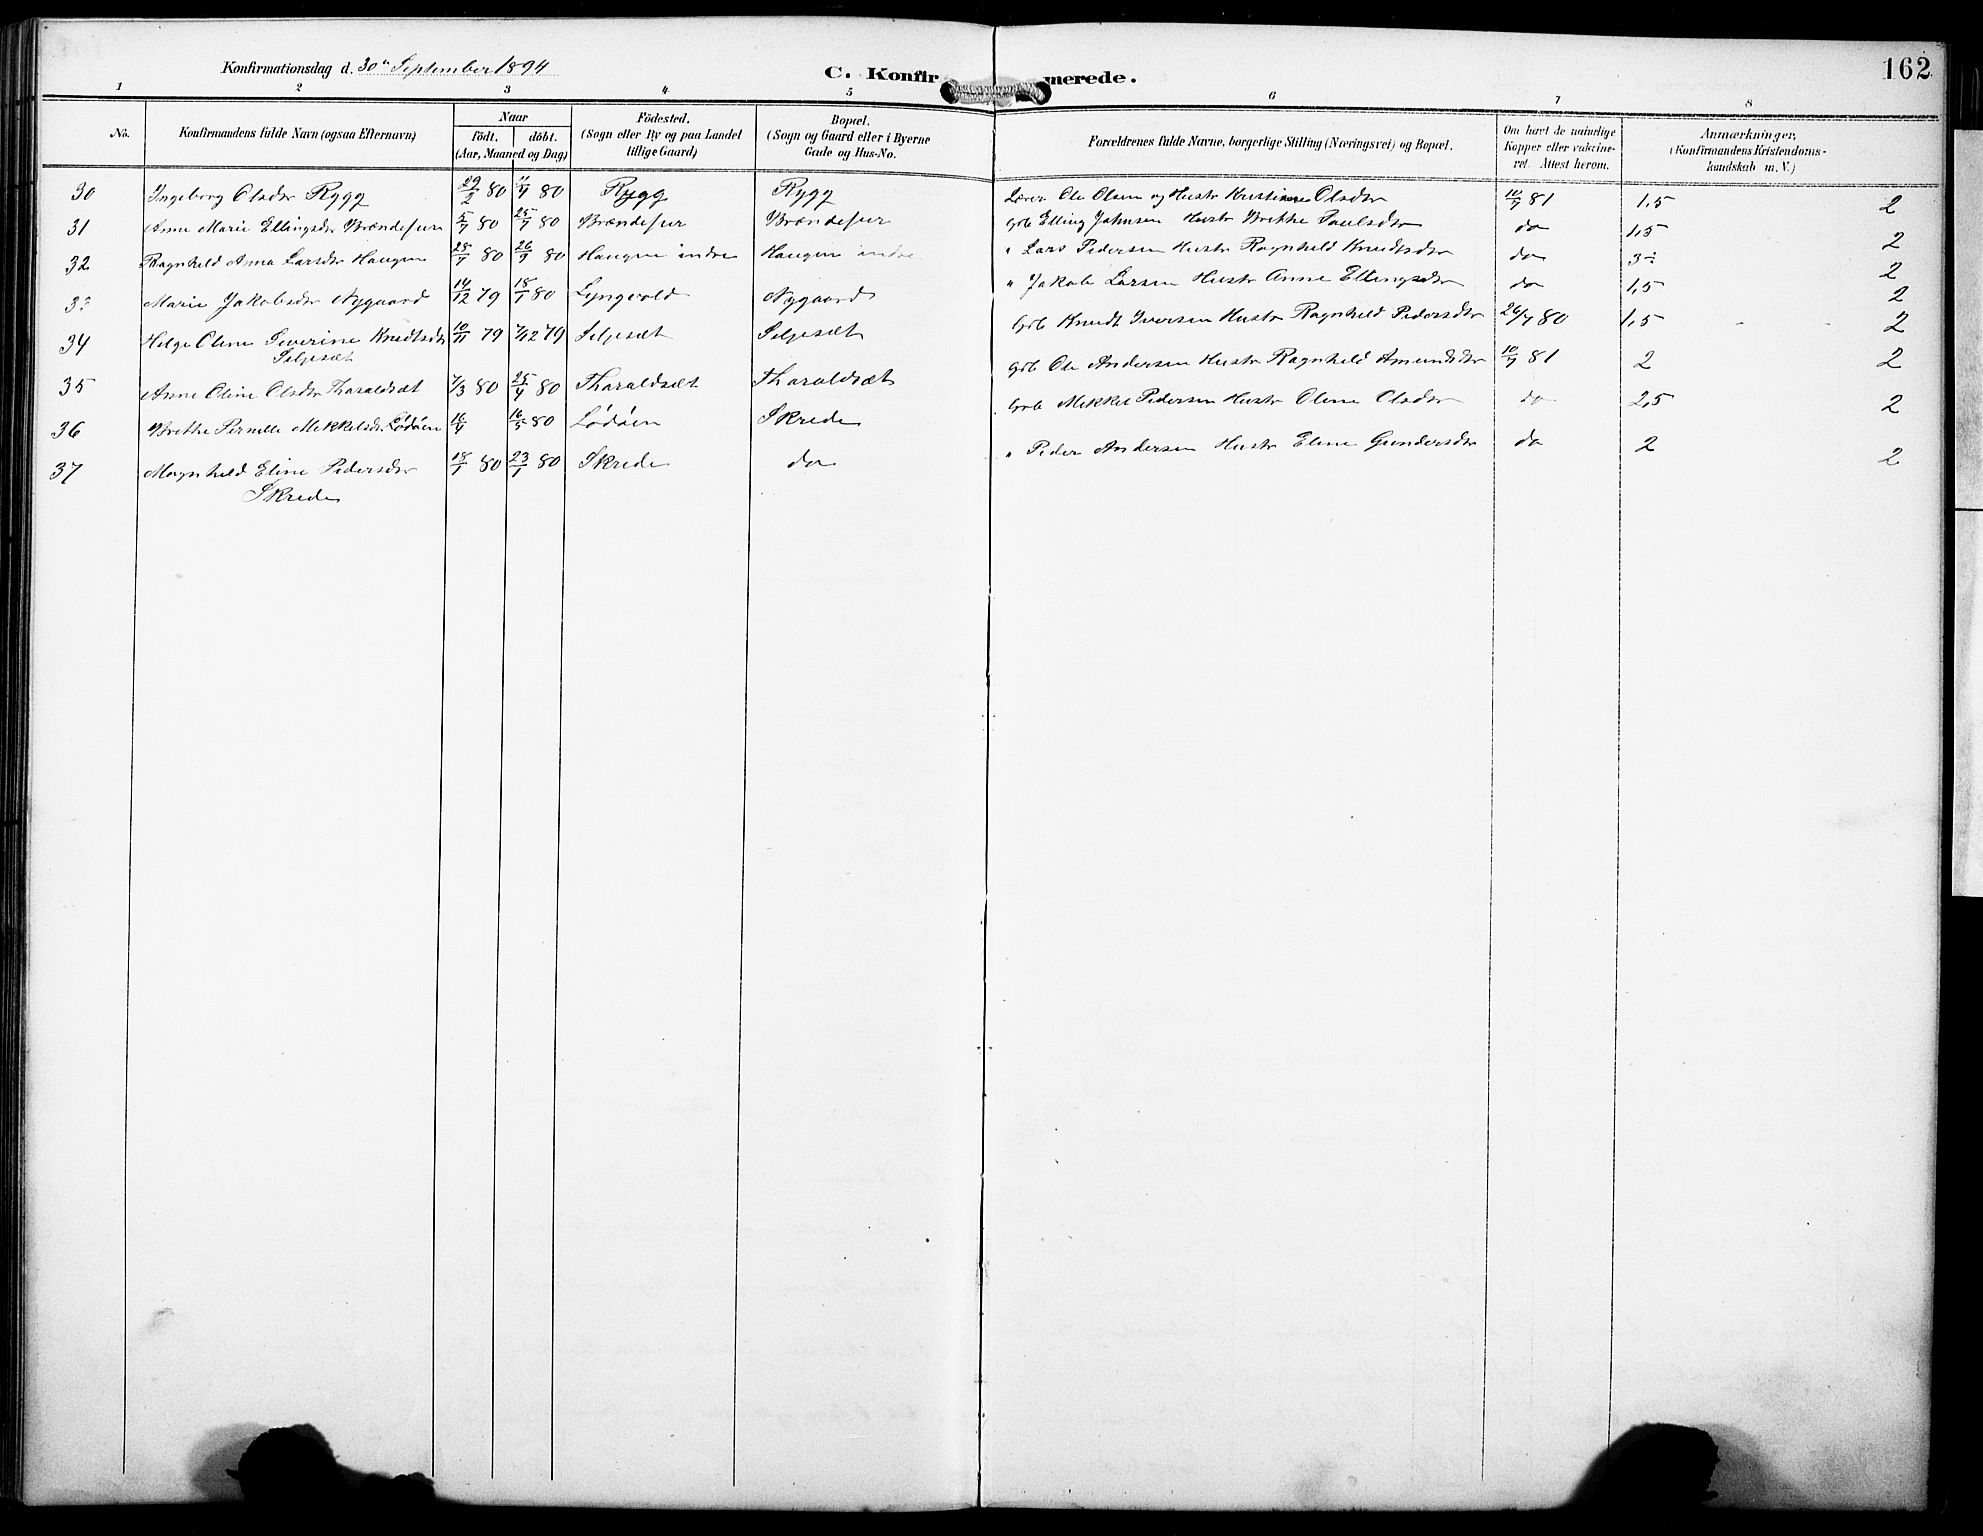 162
Konfirmationsdag d. 30te September 1894
C. Konfirmerede.
1 2 3 4 5 6 7 8
No. Konfirmandens fulde Navn (ogsaa Efternavn) Naar født. døbt. (Aar, Maaned og Dag) Fødested. (Sogn eller By og paa Landet tillige Gaard) Bopæl. (Sogn og Gaard eller i Byerne Gade og Hus-No. Forældrenes fulde Navne, borgerlige Stilling (Næringsvei) og Bopæl. Om havt de naturlige Kopper eller vaccineret. Attest herom. Anmærkninger, (Konfirmandens Kristendomskundskab m. V.)
30 Ingeborg Olsdtr Rygg 29/2 80 /4 80 Rygg Rygg Lærer Ole Olsen og Hustr Kristianne Olsdtr 10/7 81 1,5 2
31 Anne Marie Ellingsdtr Brændefur 5/7 80 25/7 80 Brændefur Brændefur Grb Elling Johnsen Hustr Brethe Paulsdtr do 1,5 2
32 Ragnhild Anna Larsdtr Haugen 28/7 80 26/9 80 Haugen indre Haugen indre " Lars Pedersen Hustr Ragnhild Knudtsdtr do 3÷ 2
33 Marie Jakobsdtr Nygaard 14/12 79 18/1 80 Lyngvold Nygaard " Jakob Larsen Hustr Anne Ellingsdtr do 1,5 2
34 Helge Oline Severine Knudtsdtr 10/11 79 7/12 79 Seljesæt Seljesæt Grb Knudt Iversen Hustr Ragnhild Pedersdtr 26/7 80 1,5 2
Seljesæt
35 Anne Oline Olsdtr Tharaldsæt 7/3 80 25/4 80 Tharaldsæt Tharaldsæt Grb Ole Andersen Hustr Ragnhild Amundsdtr 10/7 81 2 2
36 Brethe Pernille Mekkelsdtr Lødøen 16/4 16/5 80 Lødøen Skrede Grb Mekkel Pedersen Hustr Oline Olsdtr do 2,5 2
37 Magnhild Eline Pedersdtr 18/1 80 23/1 80 Skrede do " Peder Andersen Hustr Eline Gundersdtr do 2 2
Skrede